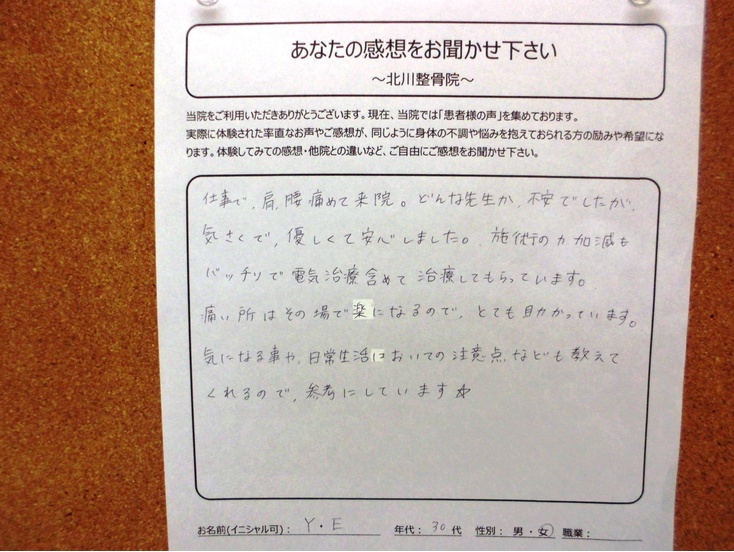 あなたの感想をお聞かせ下さい
～北川整骨院～
当院をご利用いただきありがとうございます。現在、当院では「患者様の声」を集めております。
実際に体験された率直なお声やご感想が、同じように身体の不調や悩みを抱えておられる方の励みや希望にな
ります。体験してみての感想・他院との違いなど、ご自由にご感想をお聞かせ下さい。
仕事で、肩、腰痛めて来院。どんな先生か、不安でしたが、
気さくで、優しくて安心しました。施術の力加減も
バッチリで電気治療含めて治療してもらっています。
痛い所はその場で楽になるので、とても助かっています。
気になる事や、日常生活においての注意点なども教えて
くれるので、参考にしています☆
お名前(イニシャル可)： Y・E 年代： 30代 性別： 男・女 職業：